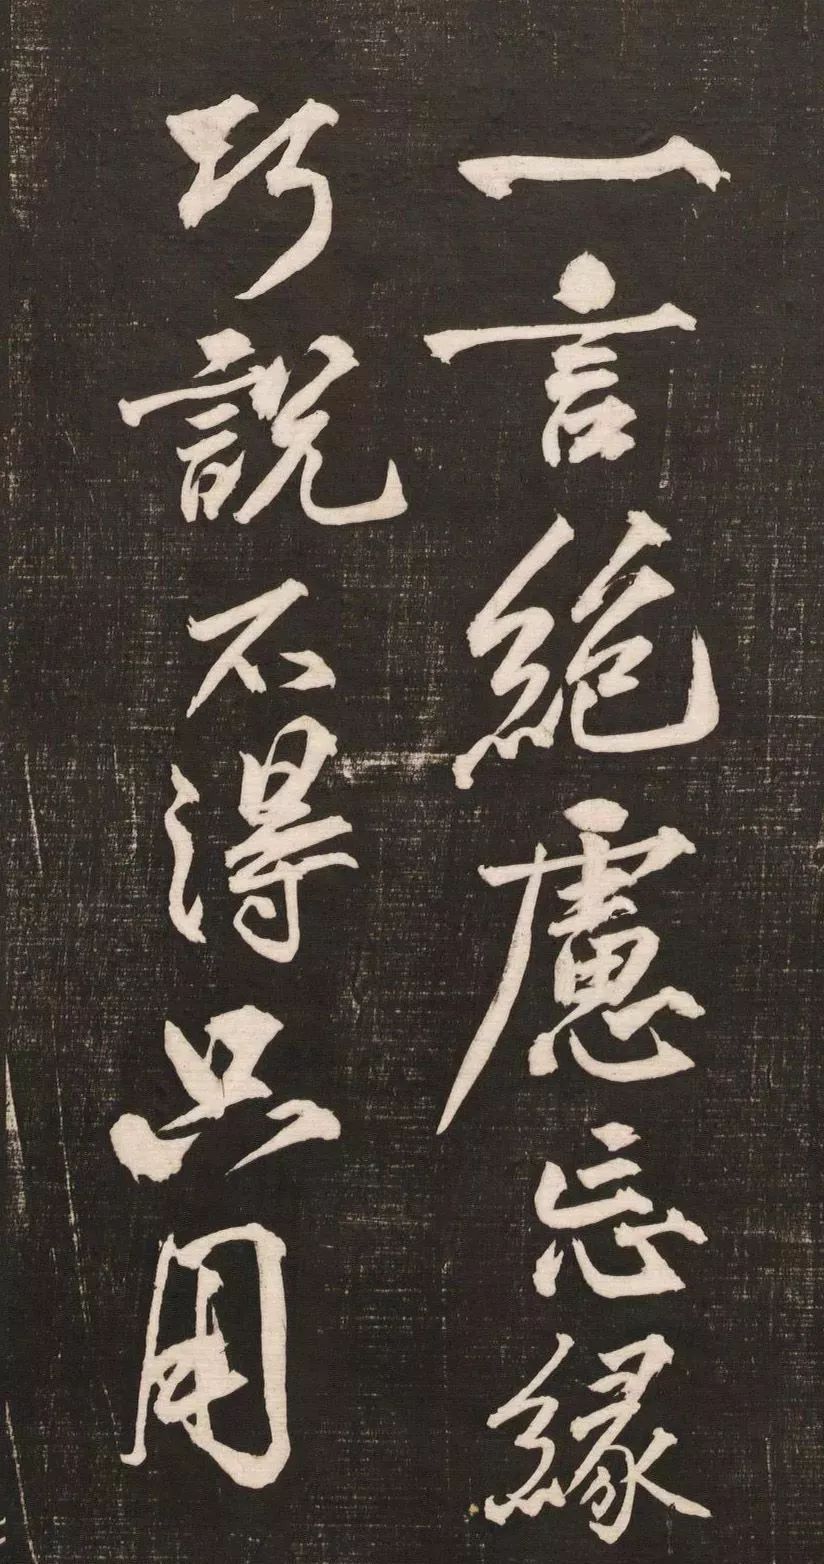 一言絕慮忘緣
巧說不得只用